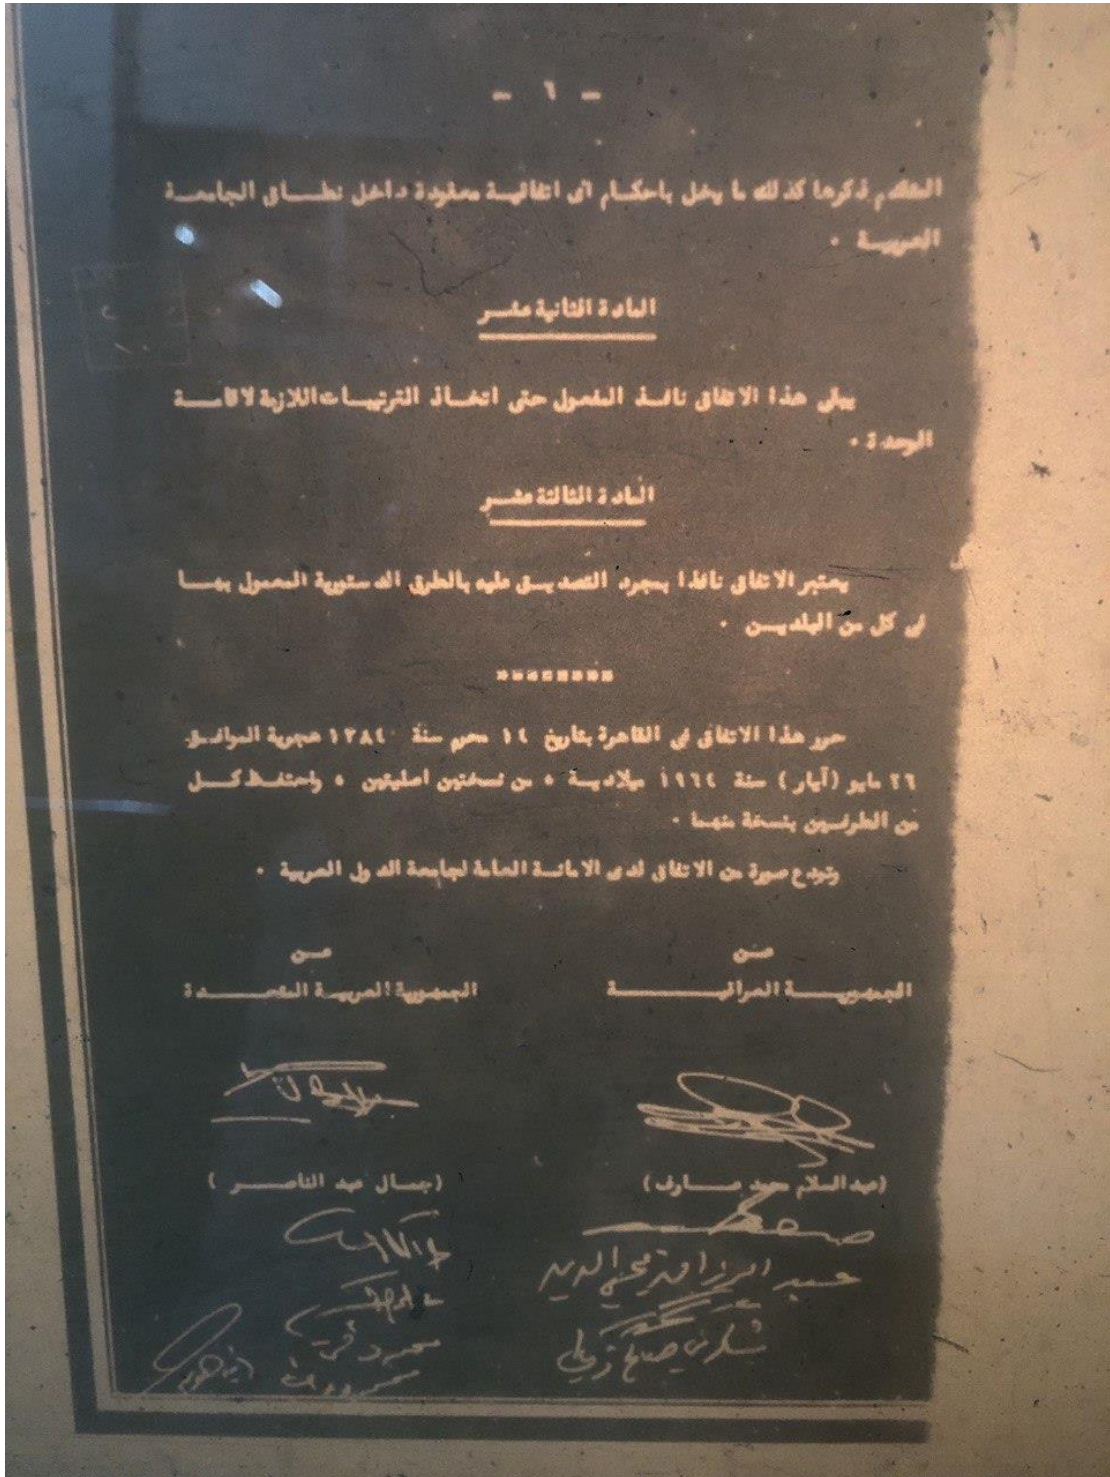 - ٦ -
المتقدم ذكرها كذلك ما يخل باحكام اى اتفاقية معقودة داخل نطاق الجامعة
العربية ٠
المادة الثانية عشر
يبقى هذا الاتفاق نافذ المفعول حتى اتخاذ الترتيبات اللازمة لاقامة
الوحدة ٠
المادة الثالثة عشر
يعتبر الاتفاق نافذا بمجرد التصديق عليه بالطرق الدستورية المعمول بها
فى كل من البلدين ٠
××××××××
حرر هذا الاتفاق فى القاهرة بتاريخ ١٤ محرم سنة ١٣٨٤ هجرية الموافق
٢٦ مايو (آيار) سنة ١٩٦٤ ميلادية ٠ من نسختين اصليتين ٠ واحتفظ كل
من الطرفين بنسخة منهما ٠
وتودع صورة من الاتفاق لدى الامانة العامة لجامعة الدول العربية ٠
عن
الجمهورية العراقية
عن
الجمهورية العربية المتحدة
(عبد السلام محمد عارف)
(جمال عبد الناصر)
عبد الرزاق محيي الدين
شكري صالح زكي
محمود